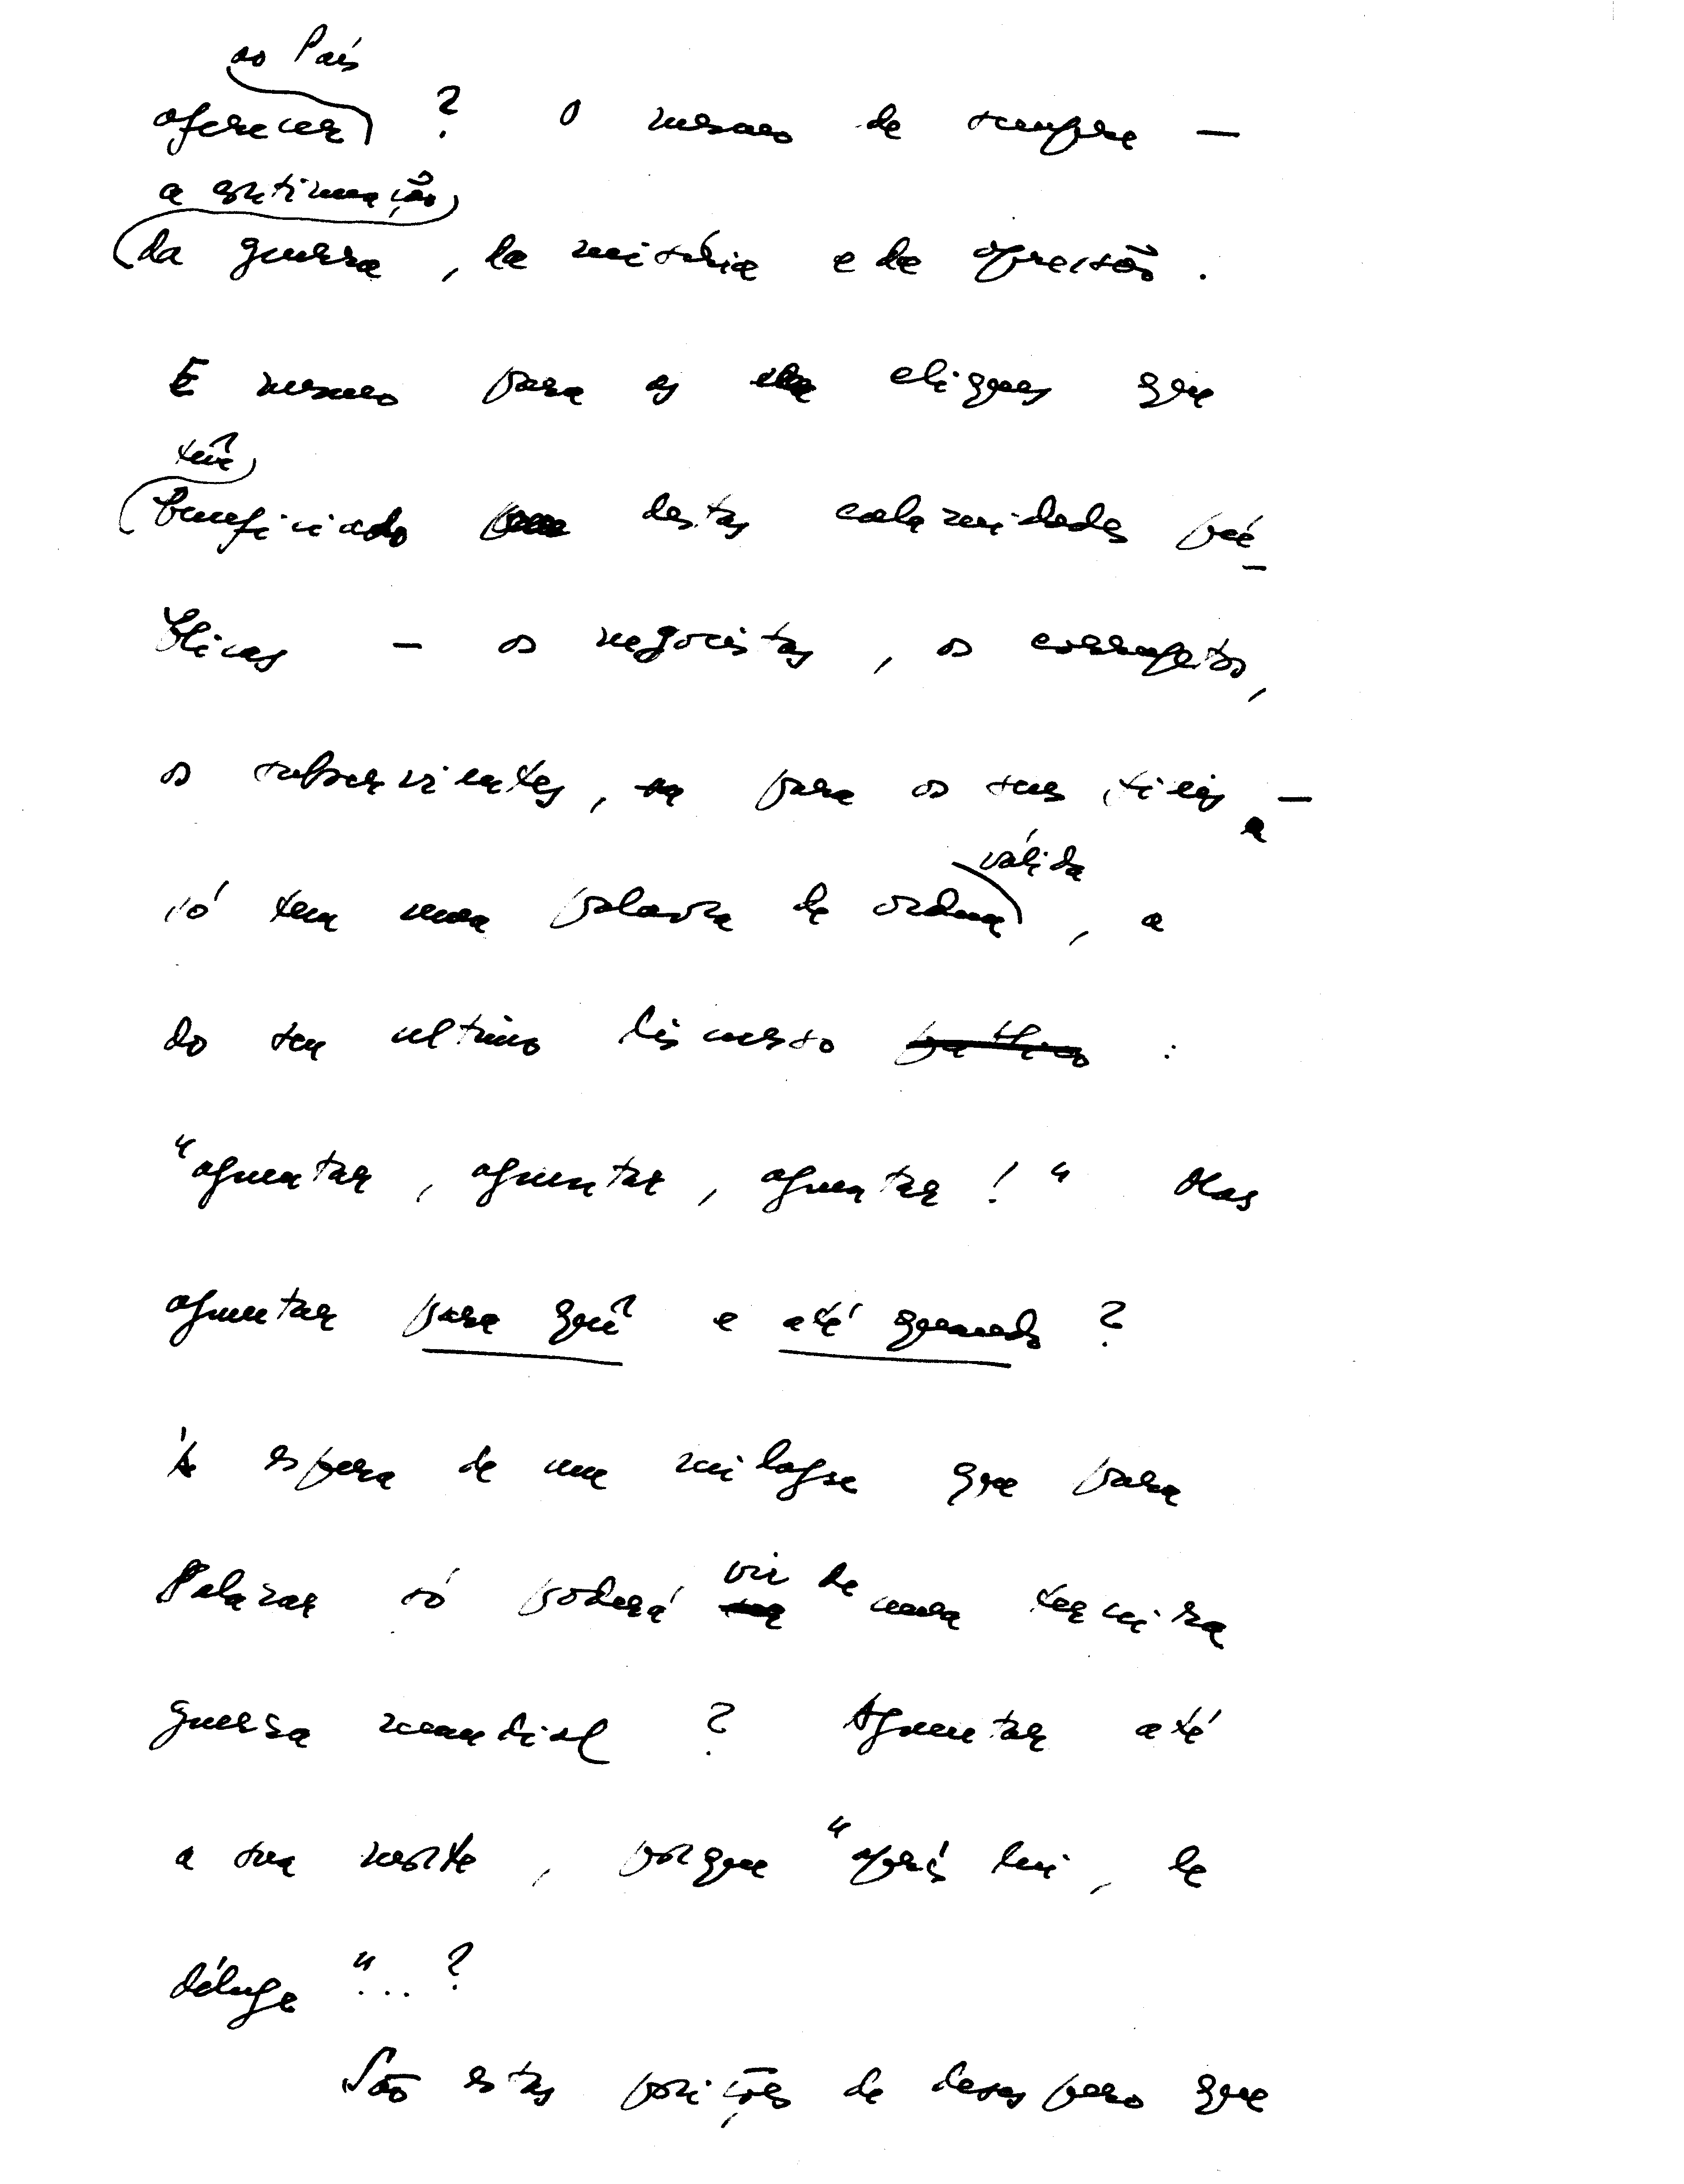 ao País
oferecer ? O mesmo de sempre —
a continuação
da guerra, da miséria e da opressão.
E mesmo para as cliques que
têm
beneficiado destas calamidades pú-
blicas — os negocistas, os corruptos,
os subservientes, para os seus fiéis —
válida
só tem uma palavra de ordem, a
do seu ultimo discurso público :
"aguentar, aguentar, aguentar!" Mas
aguentar para quê e até quando ?
À espera de um milagre que para
vir de
Salazar só poderá uma terceira
guerra mundial ? Aguentar até
a sua morte, porque "après lui, le
déluge"...?
São estas posições de desespero que